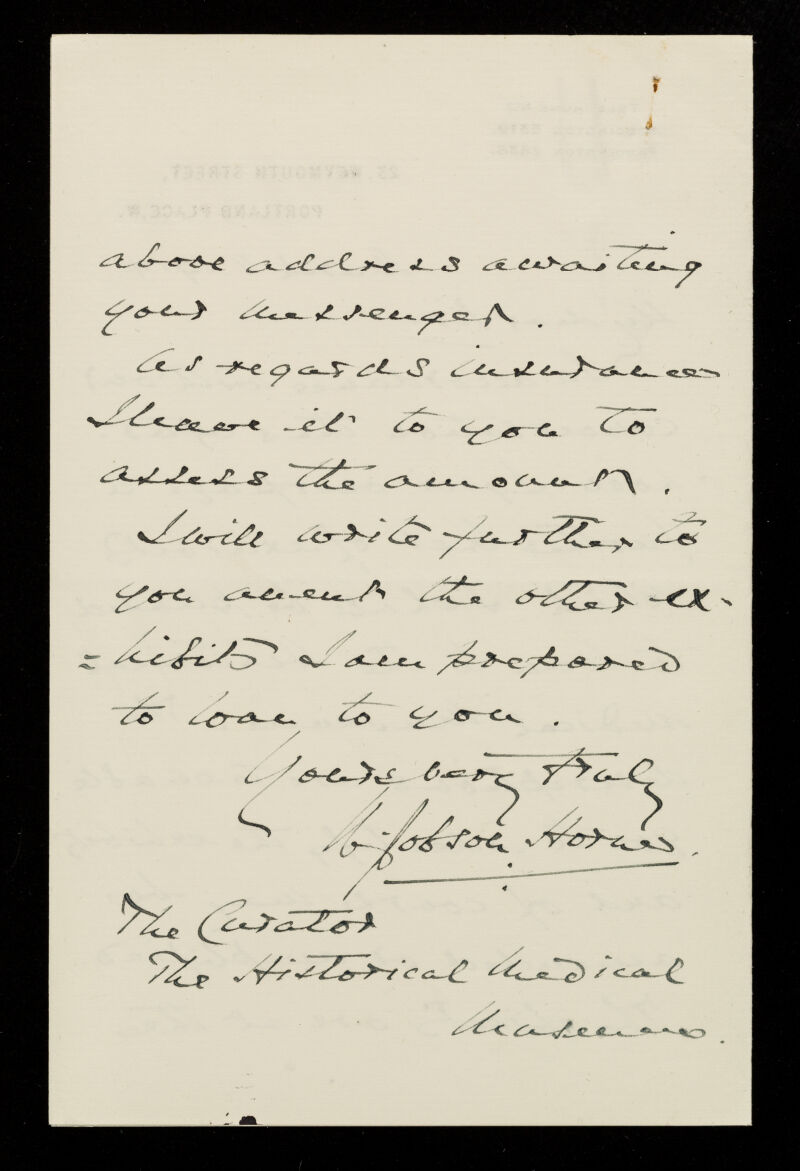 above address awaiting
your messenger.
As regards insurance
I leave it to you to
assess the amount.
I will write further to
you anent the other ex-
=hibits I am prepared
to loan to you.
Yours very truly
W. Jobson Horne.
The Curator
The Historical Medical
Museum.